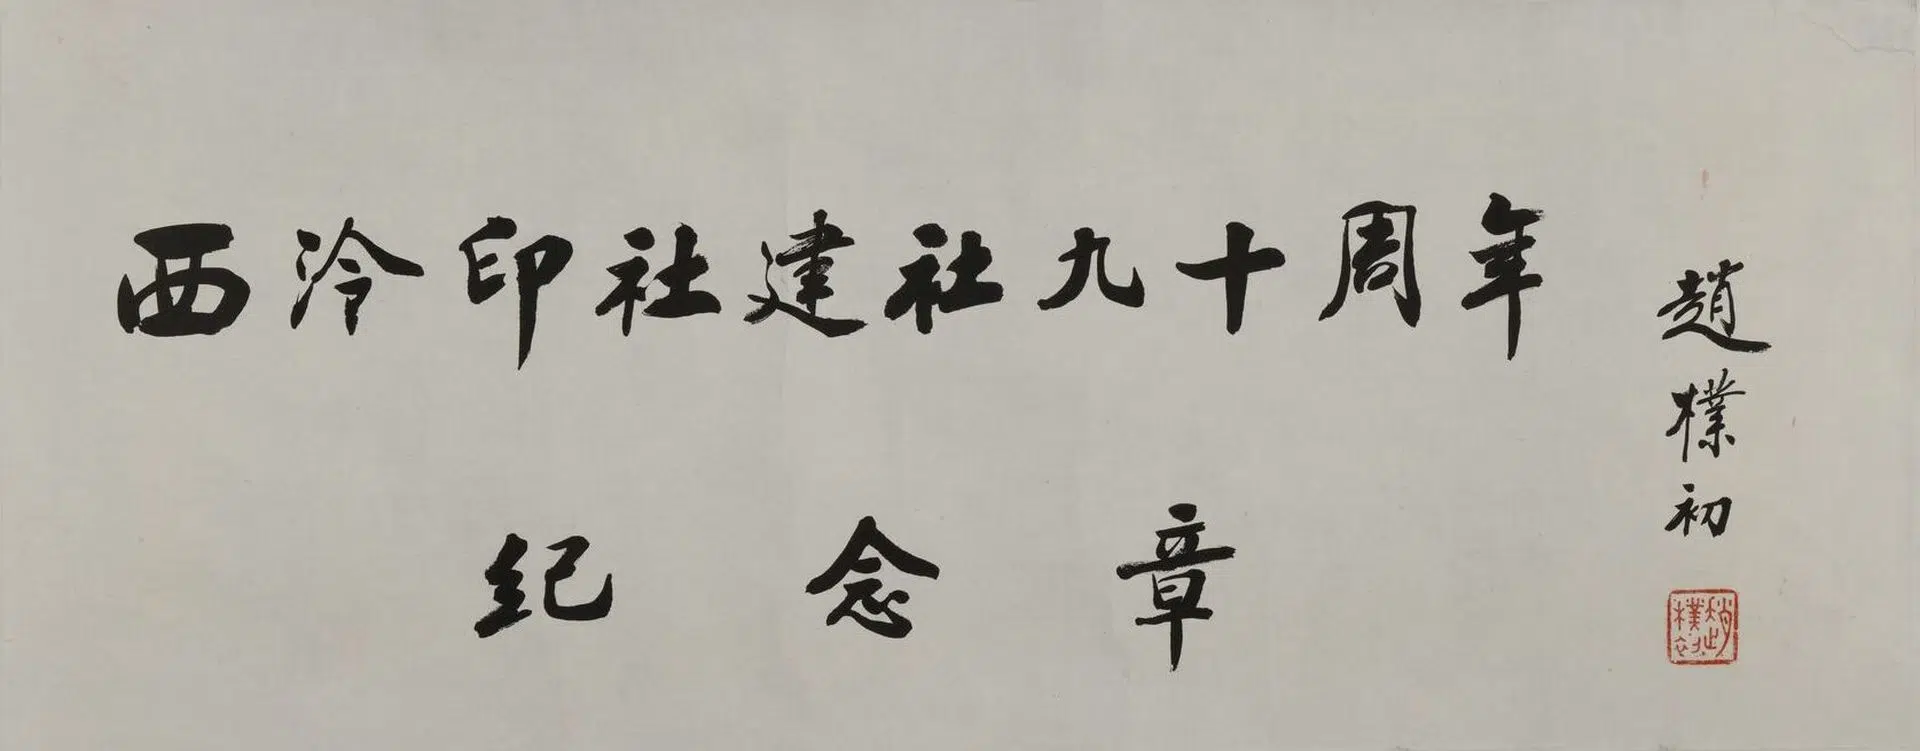 西泠印社建社九十周年
纪念章
趙樸初
趙樸初